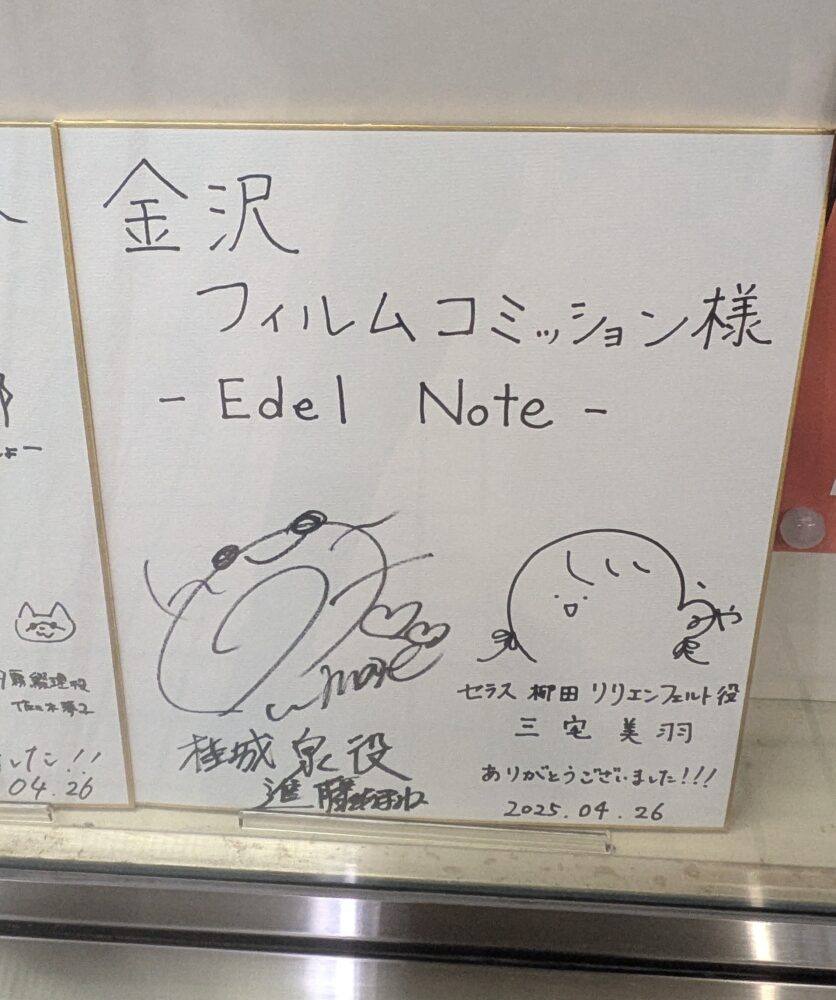 金沢
フィルムコミッション様
- Edel Note -
みや
セラス 柳田 リリエンフェルト役
三宅 美羽
ありがとうございました!!!
2025.04.26
桂城 泉役
進藤
した!!
04.26